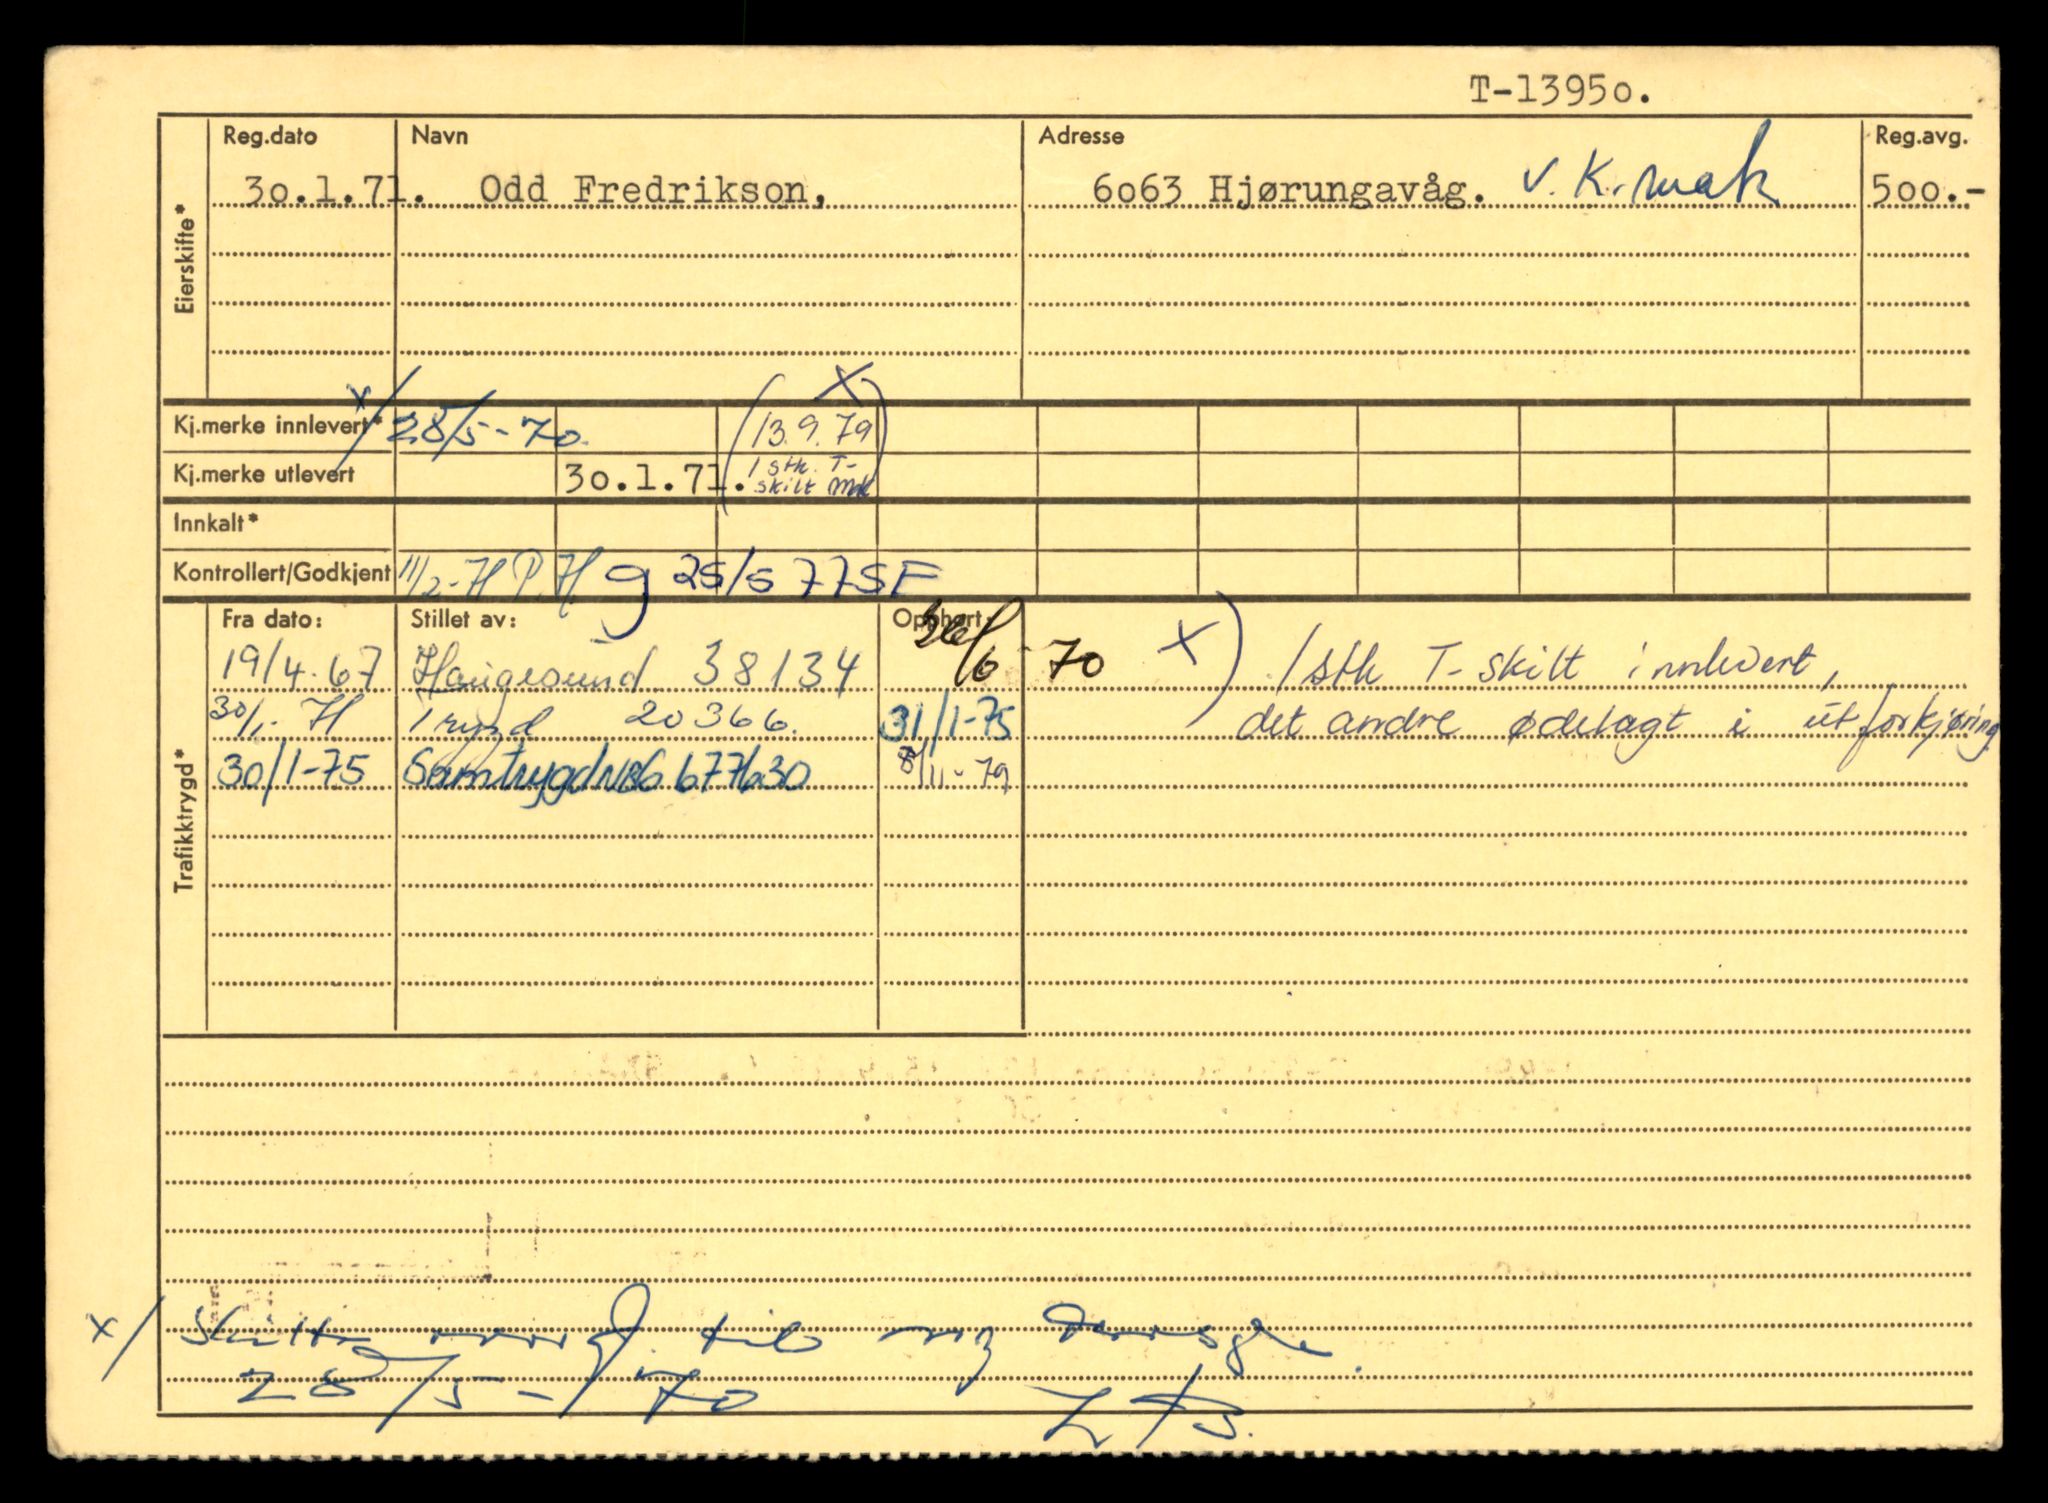 T-13950.
Reg.dato Navn Adresse Reg.avg.
30.1.71. Odd Fredrikson, 6063 Hjørungavåg. V. K. 500.-
Eierskifte*
x/
Kj.merke innlevert* 28/5-70. (13.9.79 X)
Kj.merke utlevert 30.1.71. 1 stk. T-
skilt
Innkalt*
Kontrollert/Godkjent 11/2-71 P.H g 25/5 77 SF
Trafikktrygd*
Fra dato: Stillet av: Opphørt:
19/4-67 Haugesund 38134 26/6 70 X) 1 stk T-skilt innlevert,
30/1-71 Trygd 20366. 31/1-75 det andre ødelagt i utforkjøring
30/1-75 Samtrygd 677630 8/11-79
x/ Skilter til
28/5-70